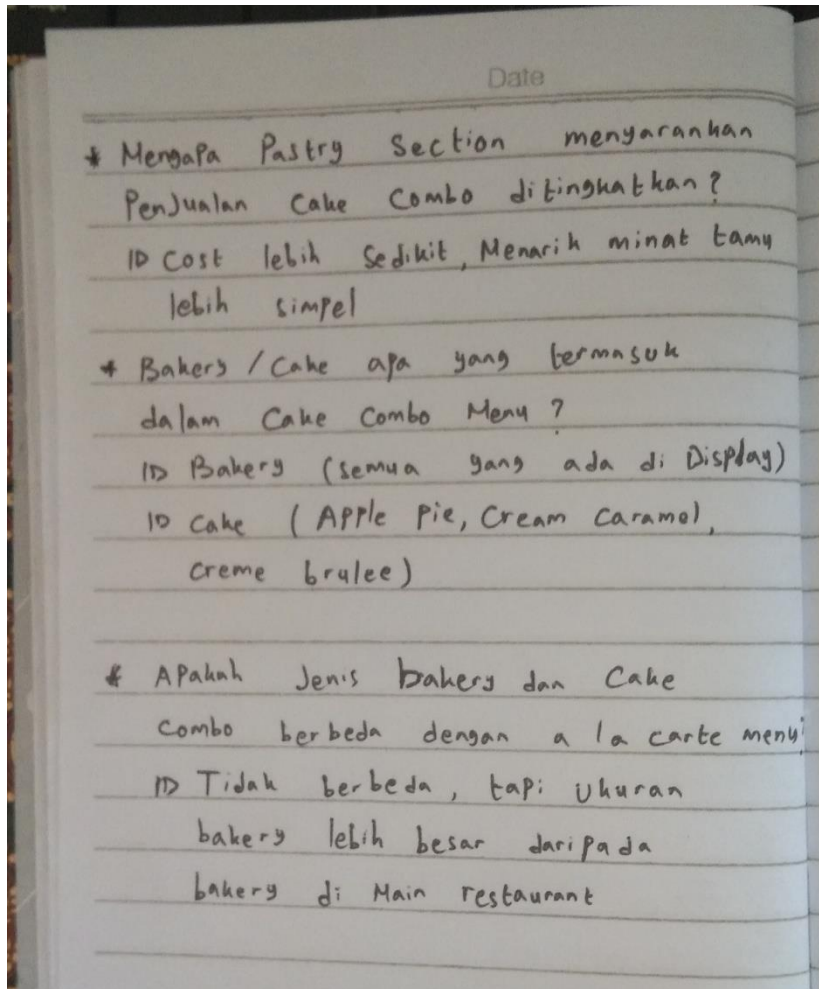 Date
* Mengapa Pastry Section menyarankan
Penjualan Cake Combo ditingkatkan?
⇒ Cost lebih sedikit, Menarik minat tamu
lebih simpel
* Bakery / Cake apa yang termasuk
dalam Cake Combo Menu ?
⇒ Bakery (semua yang ada di Display)
⇒ Cake ( Apple Pie, Cream Caramel,
creme brulee)
* Apakah Jenis bakery dan Cake
Combo berbeda dengan a la carte menu?
⇒ Tidak berbeda, tapi Ukuran
bakery lebih besar daripada
bakery di Main restaurant